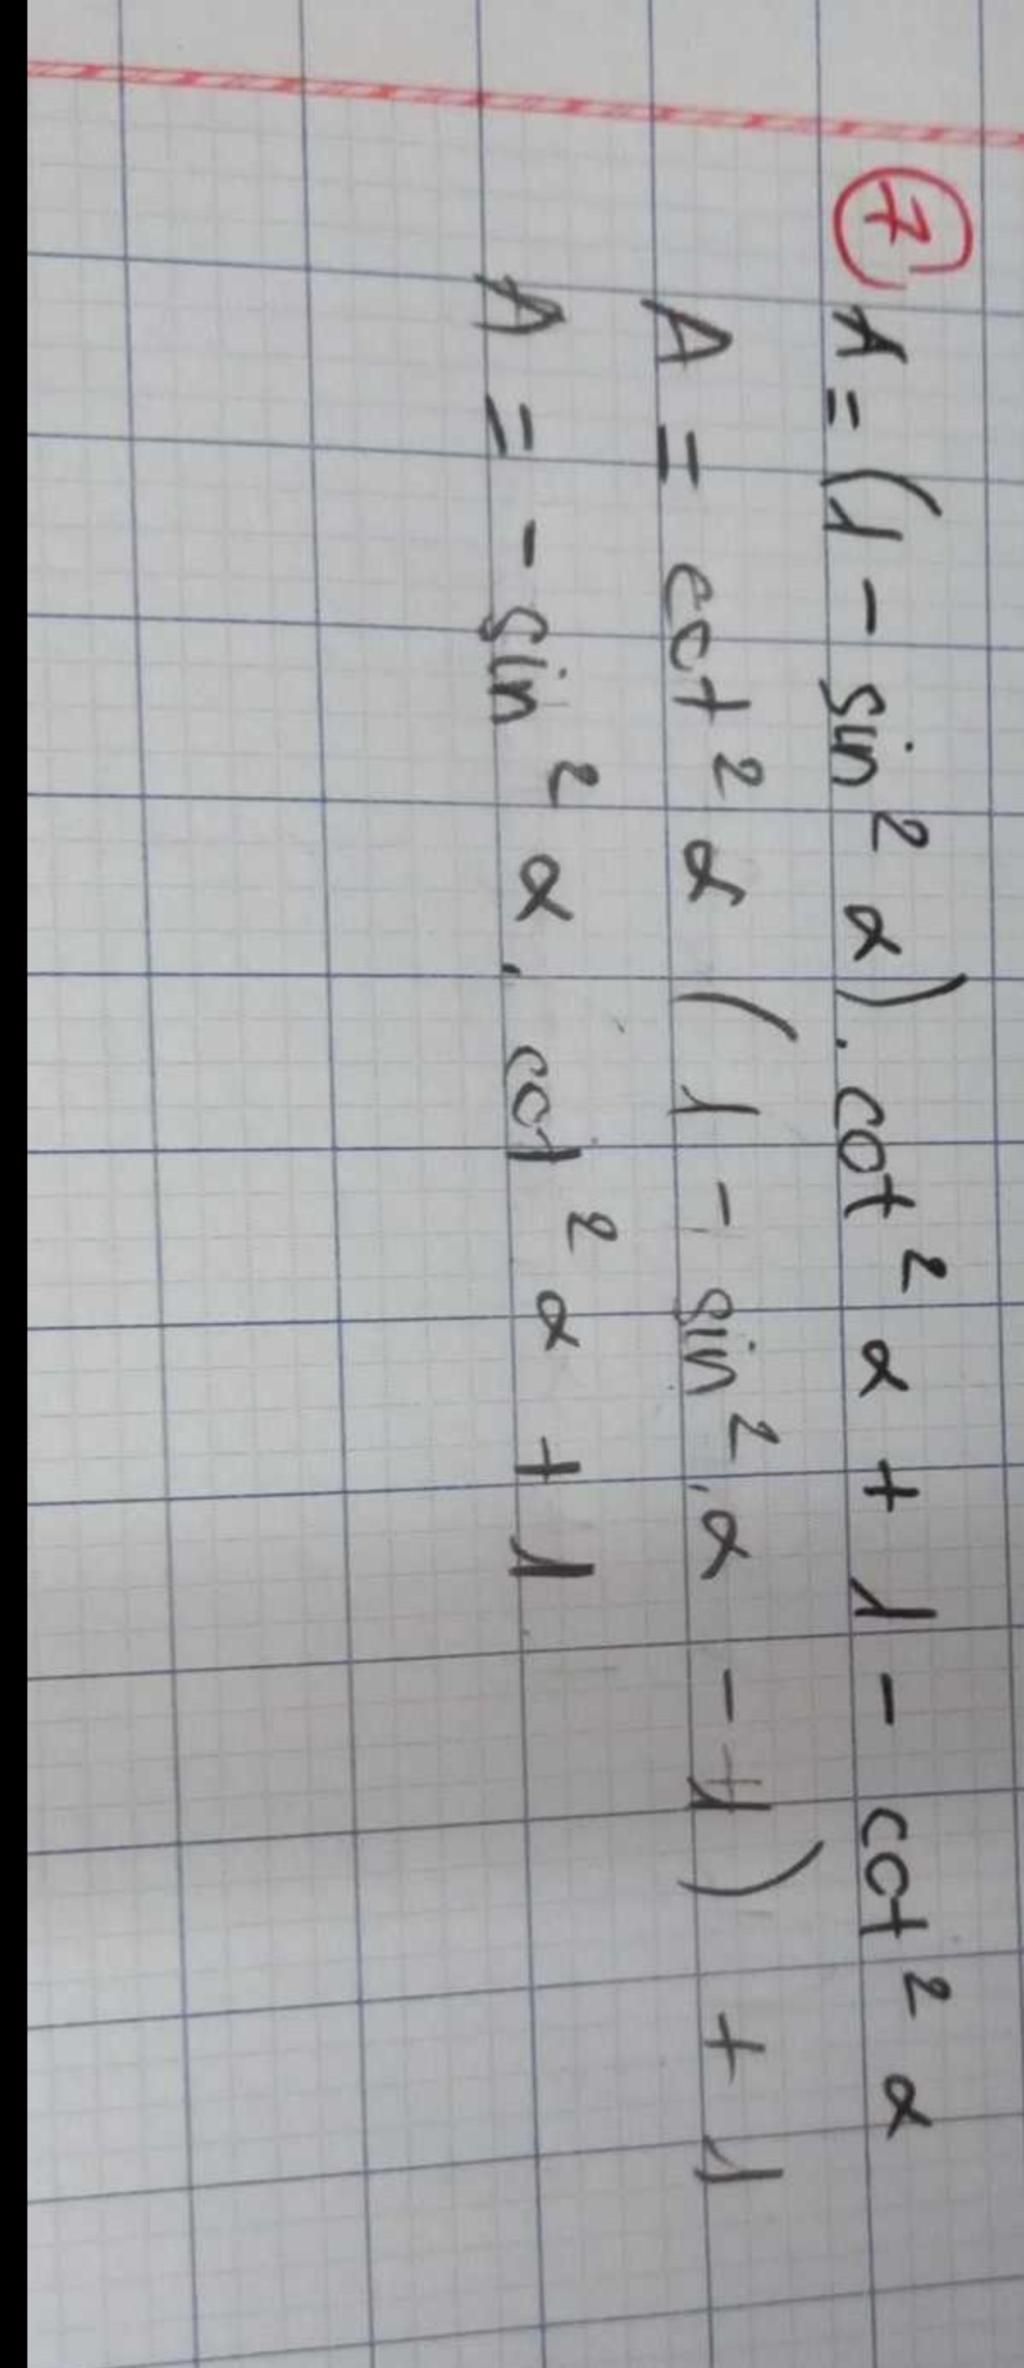 ⑦ A = (1 - sin² α). cot² α + 1 - cot² α
A = cot² α (1 - sin². α - 1) + 1
A = - sin² α. cot² α + 1